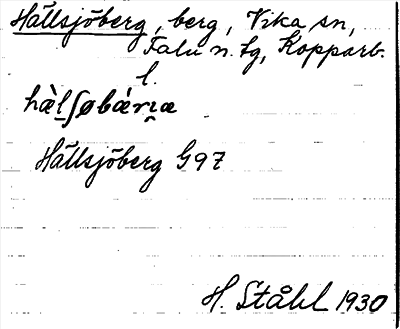 Hällsjöberg, berg, Vika sn,
Falu n. tg, Kopparb.
l.
hὰl̠ʃøbárι̯æ
Hällsjöberg G97
H. Ståhl 1930